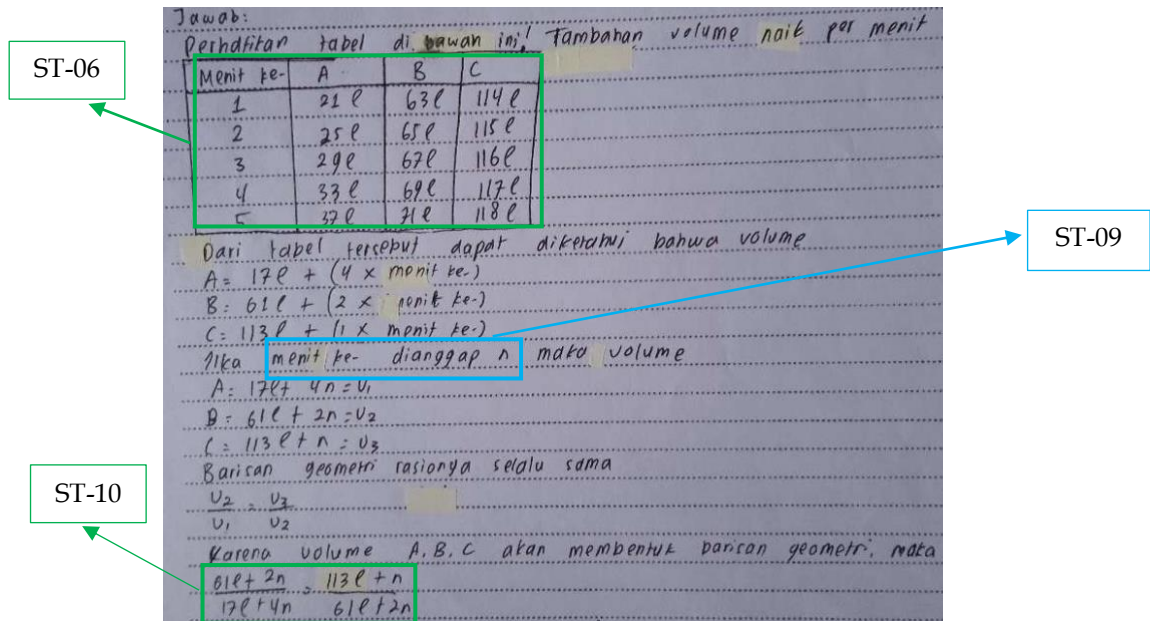 Jawab:
Perhatikan tabel di bawah ini! Tambahan volume naik per menit
ST-06
Menit ke- A B C
1 21 l 63 l 114 l
2 25 l 65 l 115 l
3 29 l 67 l 116 l
4 33 l 69 l 117 l
5 37 l 71 l 118 l
Dari tabel tersebut dapat diketahui bahwa volume
ST-09
A = 17 l + (4 x menit ke-)
B = 61 l + (2 x menit ke-)
C = 113 l + (1 x menit ke-)
Jika menit ke- dianggap n maka volume
A = 17 l + 4n = U₁
B = 61 l + 2n = U₂
C = 113 l + n = U₃
Barisan geometri rasionya selalu sama
ST-10
U₂/U₁ = U₃/U₂
Karena volume A, B, C akan membentuk barisan geometri, maka
61 l + 2n / 17 l + 4n = 113 l + n / 61 l + 2n